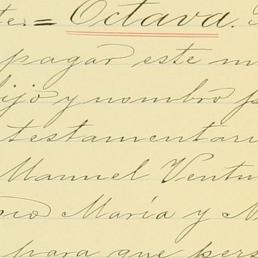 te.= Octava.
pagar este m
ijo y nombro p
testamentari
Manuel Ventu
cio María y N
para que pers